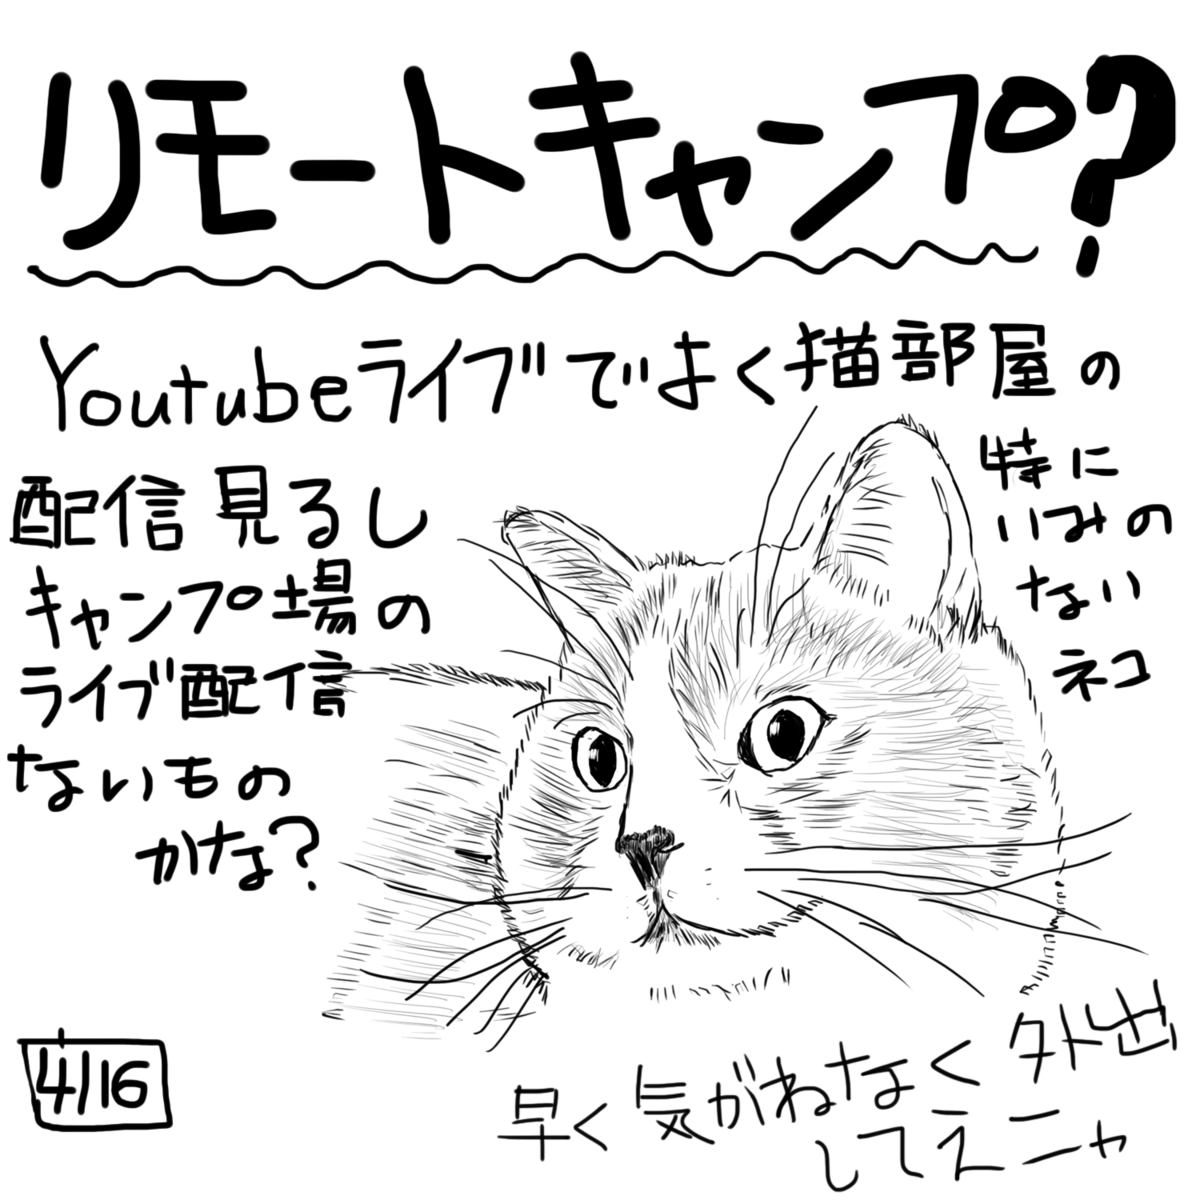 リモートキャンプ?
Youtubeライブでよく猫部屋の
配信見るし
キャンプ場の
ライブ配信
ないもの
かな?
特に
いみの
ない
ネコ
4/16
早く気がねなく外出
してえニャ